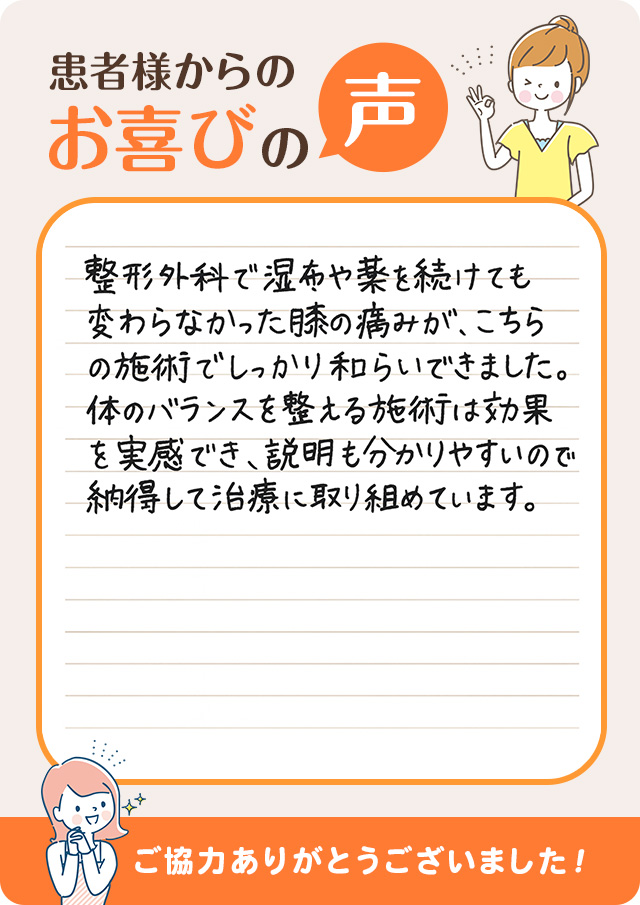 患者様からの
お喜びの声
整形外科で湿布や薬を続けても
変わらなかった膝の痛みが、こちら
の施術でしっかり和らいできました。
体のバランスを整える施術は効果
を実感でき、説明も分かりやすいので
納得して治療に取り組めています。
ご協力ありがとうございました！